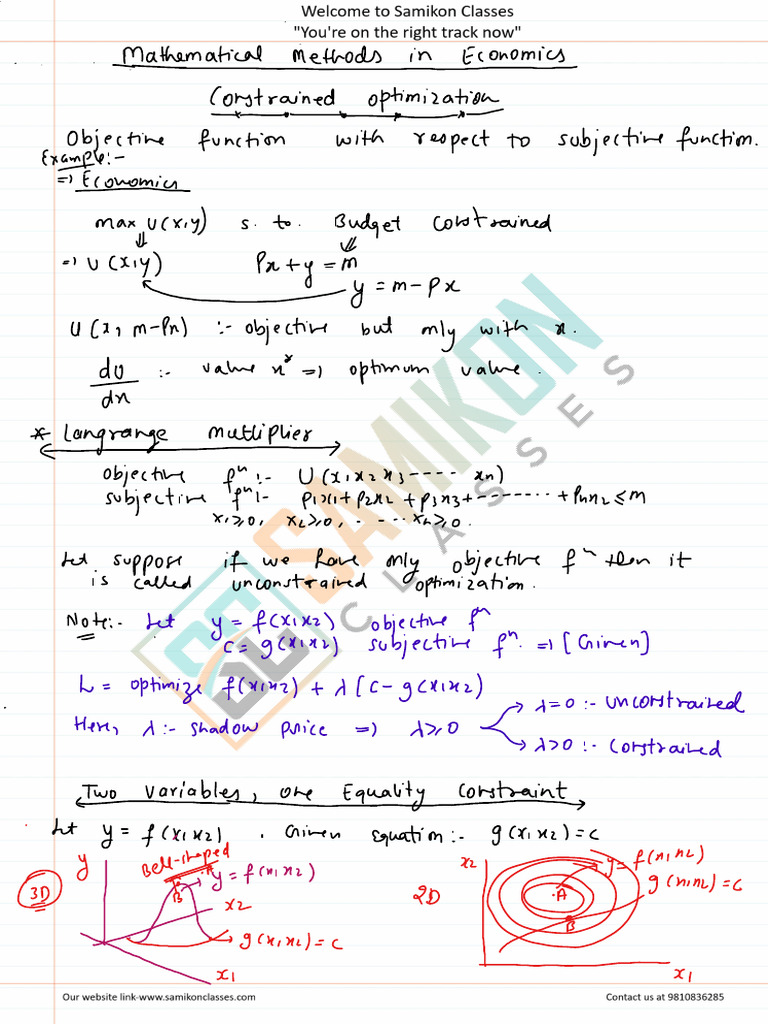 Welcome to Samikon Classes
"You're on the right track now"
Mathematical Methods in Economics
Constrained optimization
Objective function with respect to subjective function.
Example:-
=> Economics
max U(x,y) s. to. Budget constrained
=> U(x,y) Px + y = m
y = m - Px
U(x, m-Px) :- objective but only with x.
dU/dx :- value x* => optimum value.
* Langrange multiplier
objective fⁿ :- U(x₁x₂x₃---- xn)
subjective fⁿ :- p₁x₁+p₂x₂+p₃x₃+--------+Pnx₂≤m
x₁≥0, x₂≥0, - - - - xn≥0.
Let suppose if we have only objective fⁿ then it
is called unconstrained optimization.
Note:- Let y = f(x₁x₂) objective fⁿ
C = g(x₁x₂) subjective fⁿ. => [Given]
L = optimize f(x₁x₂) + λ[C-g(x₁x₂)
λ=0 :- unconstrained
Here, λ :- shadow price => λ≥0
λ>0 :- constrained
Two variables, one Equality constraint
Let y = f(x₁x₂) . Given Equation:- g(x₁x₂)=c
3D
y
Bell-shaped
A
B
y = f(x₁x₂)
x₂
g(x₁x₂)=c
x₁
2D
x₂
y=f(x₁x₂)
g(x₁x₂)=c
A
B
x₁
SAMIKON
CLASSES
Our website link-www.samikonclasses.com
Contact us at 9810836285